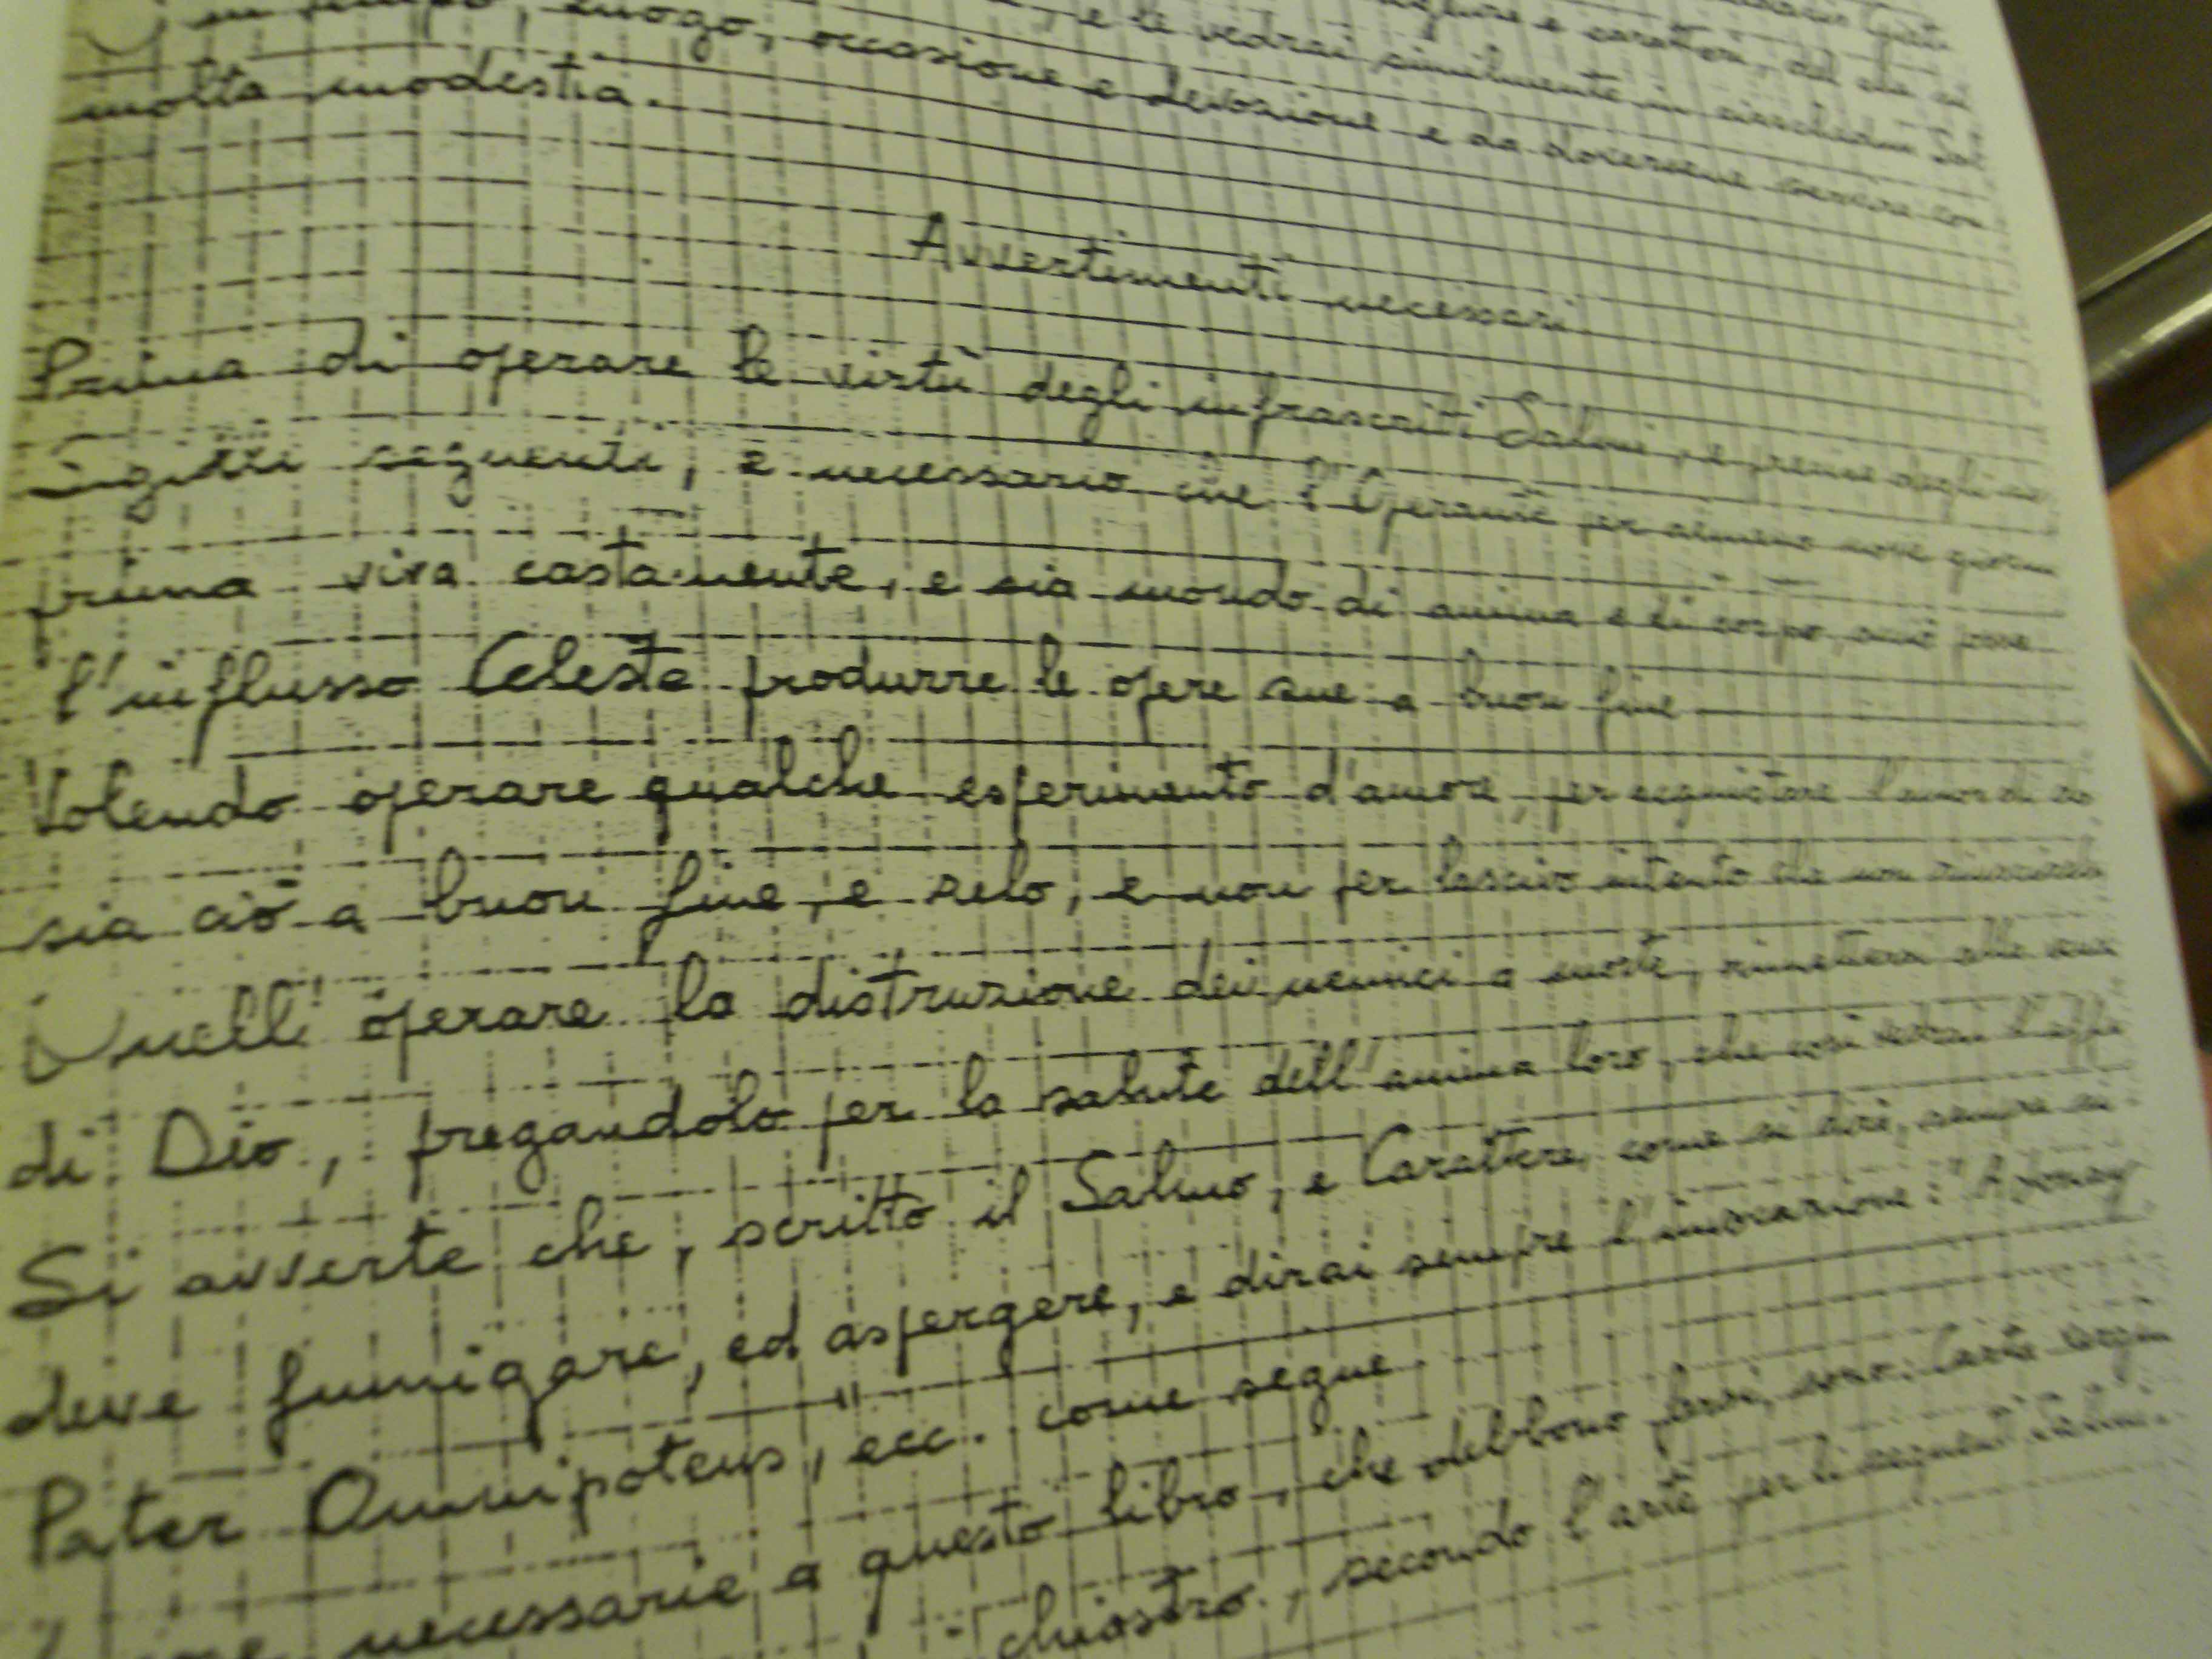 e le vedrai similmente in
luogo, occasione e devozione e da doversene servire con
molta modestia.
Avvertimenti necessari
Prima di operare le virtù degli infrascritti Salmi, e prima degli
seguenti, è necessario che l'Operante per almeno nove giorni
prima viva castamente, e sia mondo di anima e di corpo, acciò
l'influsso Celeste produrre le opere sue a buon fine
Volendo operare qualche esperimento d'amore, per acquistare l'amor di
sia ciò a buon fine, e zelo, e non per lascivo intento che non
Quell' operare la distruzione dei nemici a morte, rimetterai alla
di Dio, pregandolo per la salute dell'anima loro, che così vedrai
Si avverte che, scritto il Salmo, e Carattere, come si dirà, sempre si
deve fumigare, ed aspergere, e dirai sempre l'invocazione: "Adonay
Pater Omnipotens", ecc. come segue
necessarie a questo libro, che debbono farsi, sono: Carta
secondo l'arte per li seguenti Salmi.